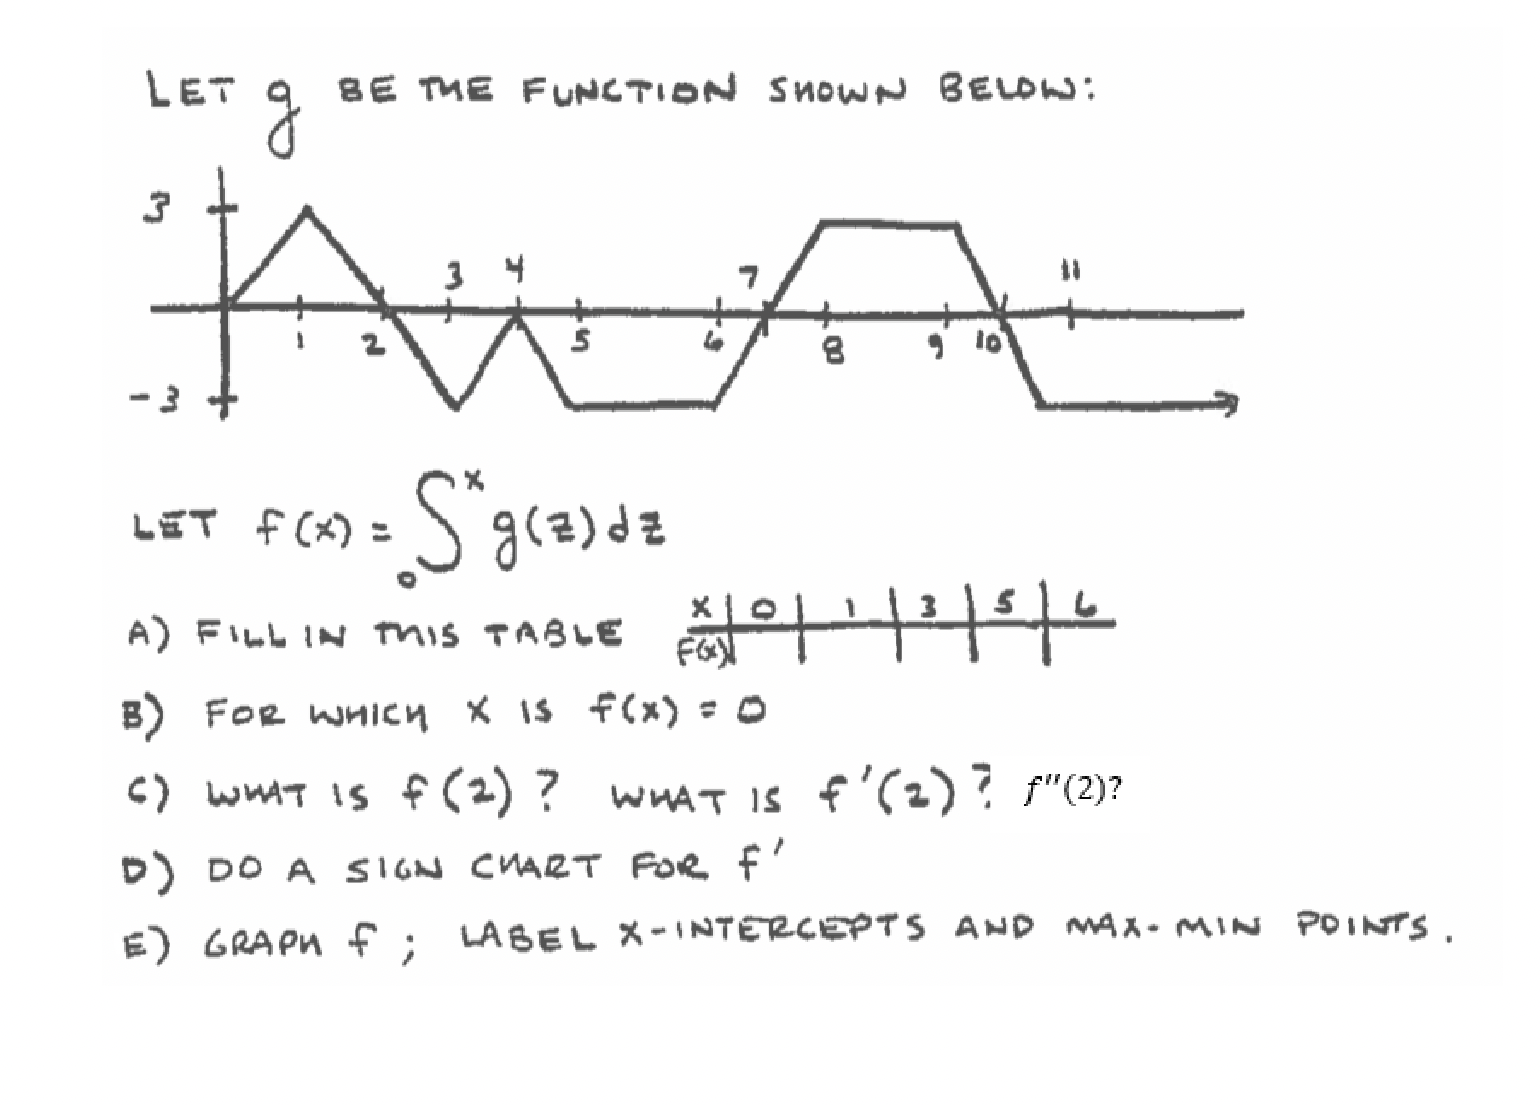 LET g BE THE FUNCTION SHOWN BELOW:
3
3 4 7 11
1 2 5 6 8 9 10
-3
LET f(x) = ∫₀ˣ g(z)dz
A) FILL IN THIS TABLE x | 0 | 1 | 3 | 5 | 6
F(x)
B) FOR WHICH X IS f(x) = 0
C) WHAT IS f(2)? WHAT IS f'(2)? f''(2)?
D) DO A SIGN CHART FOR f'
E) GRAPH f; LABEL X-INTERCEPTS AND MAX-MIN POINTS.